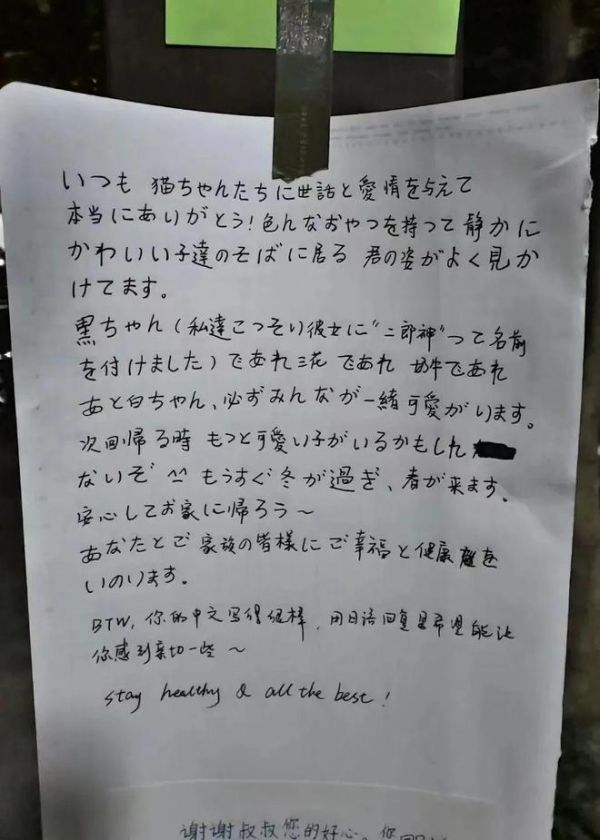 いつも 猫ちゃんたちに世話と愛情を与えて
本当にありがとう！色んなおやつを持って静かに
かわいい子達のそばに居る 君の姿がよく見か
けてます。
黒ちゃん（私達こっそり彼女に“二郎神”って名前
を付けました）であれ 三花 であれ 奶牛であれ
あと白ちゃん、必ずみんなが一緒可愛がいます。
次回帰る時 もっと可愛い子がいるかもした
ないぞ ^^ もうすぐ冬が過ぎ、春が来ます。
安心してお家に帰ろう～
あなたとご家族の皆様にご幸福と健康を
いのります。
BTW, 你的中文写得很棒, 用日语回复是希望能让
你感到亲切一些～
stay healthy & all the best!
谢谢叔叔您的好心。您